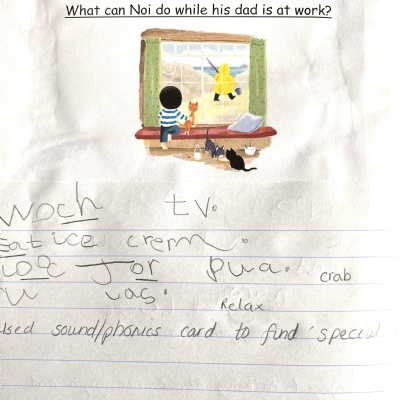 What can Noi do while his dad is at work?
woch tv.
eat ice crem.
for
crab
Relax
Used sound/phonics card to find special